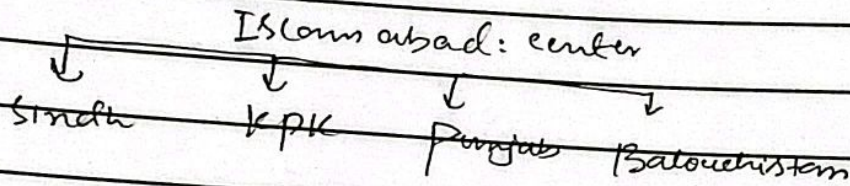 Islamabad: center
Sindh KPK Punjab Balouchistan